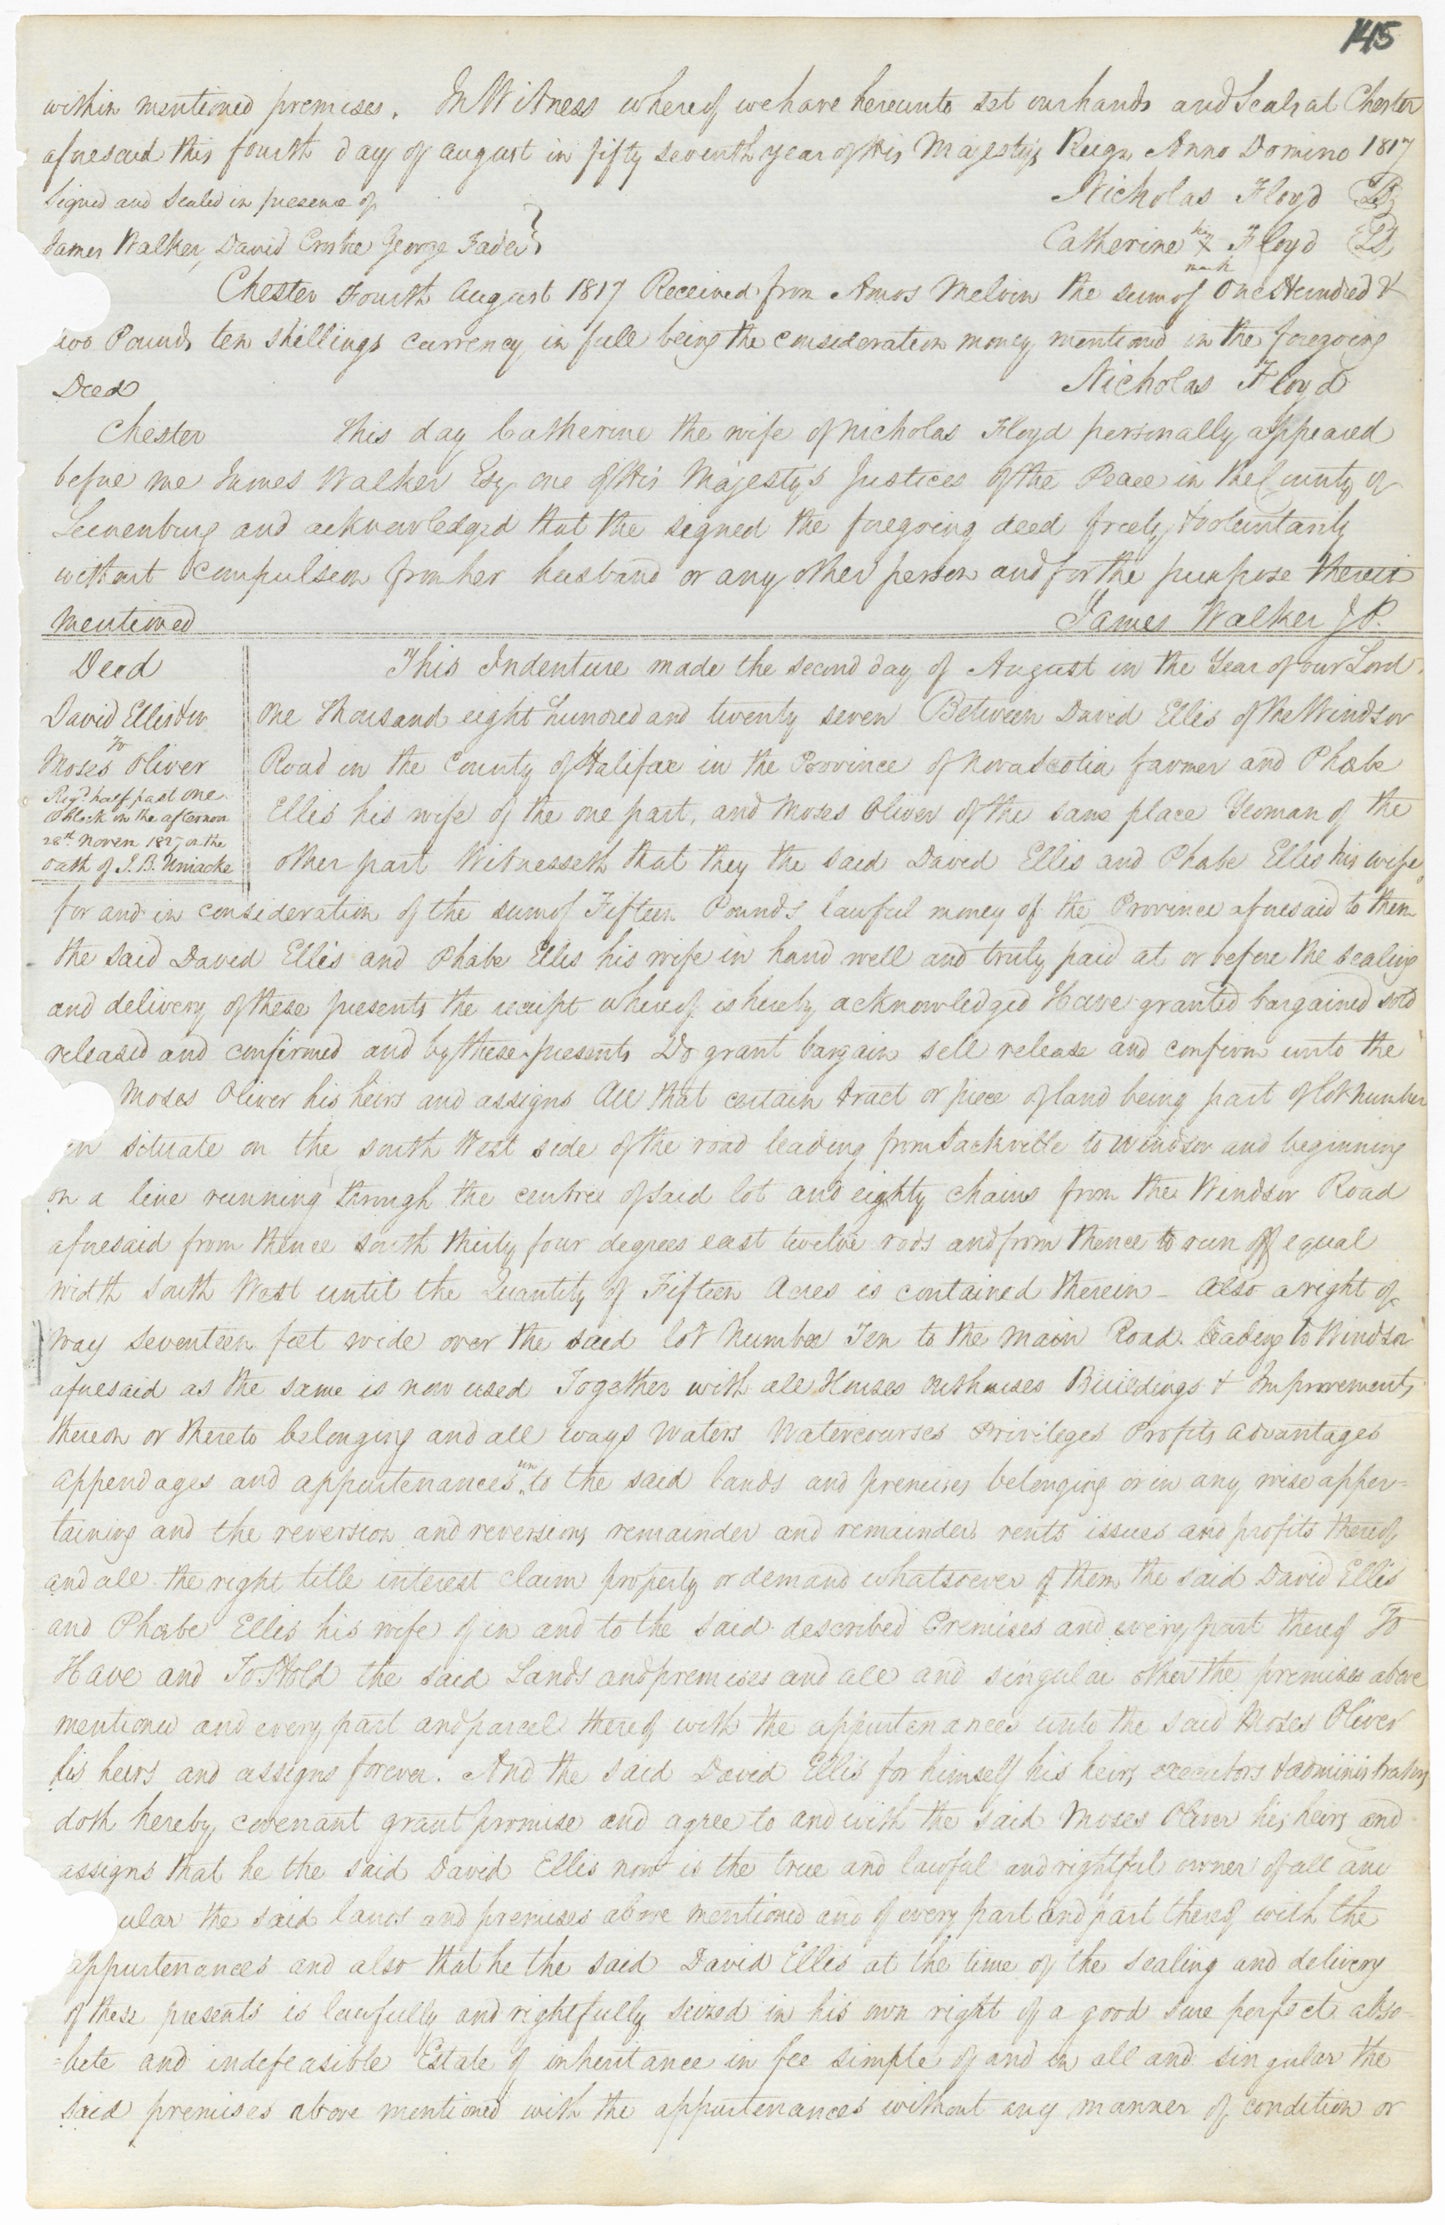 145
within mentioned premises. In Witness whereof we have hereunto set our hands and Seals at Chester
aforesaid this fourth day of august in fifty seventh year of His Majesty's Reign Anno Domino 1817
Signed and Sealed in presence of
Nicholas Floyd LS
James Walker, David Crostre George Fader
Catherine her X mark Floyd LS
Chester Fourth August 1817 Received from Amos Melvin the sum of One Hundred &
two Pounds ten shillings currency in full being the consideration money mentioned in the foregoing
Deed
Nicholas Floyd
Chester This day Catherine the wife of Nicholas Floyd personally appeared
before me James Walker Esq one of His Majesty's Justices of the Peace in the County of
Lunenburg and acknowledged that the signed the foregoing deed freely & voluntarily
without compulsion from her husband or any other person and for the purpose therein
mentioned
James Walker J P.
Deed
David Ellis & ux
to
Moses Oliver
Regd half past one
O'Clock in the afternon
28th Novem 1827 on the
oath of J. B. Uniacke
This Indenture made the second day of August in the Year of our Lord
One thousand eight hundred and twenty seven Between David Ellis of the Windsor
Road in the County of Halifax in the Province of Nova Scotia farmer and Phœbe
Ellis his wife of the one part, and Moses Oliver of the same place Yeoman of the
other part Witnesseth that they the said David Ellis and Phœbe Ellis his wife
for and in consideration of the sum of Fifteen Pounds lawful money of the Province aforesaid to them
the said David Ellis and Phœbe Ellis his wife in hand well and truly paid at or before the sealing
and delivery of these presents the receipt whereof is hereby acknowledged Have granted bargained sold
released and confirmed and by these presents Do grant bargain sell release and confirm unto the
Moses Oliver his heirs and assigns All that certain tract or piece of land being part of lot number
en situate on the south West side of the road leading from Sackville to Windsor and beginning
on a line running through the centre of said lot and eighty chains from the Windsor Road
aforesaid from thence South thirty four degrees east twelve rods and from thence to run off equal
width South West until the Quantity of Fifteen Acres is contained therein - also a right of
way seventeen feet wide over the said lot Number Ten to the main Road leading to Windsor
aforesaid as the same is now used Together with all Houses outhouses Buildings & Improvements
thereon or thereto belonging and all ways Waters Watercourses Privileges Profits Advantages
appendages and appurtenances unto the said lands and premises belonging or in any wise apper-
taining and the reversion and reversions remainder and remainders rents issues and profits thereof
and all the right title interest claim property or demand whatsoever of them the said David Ellis
and Phœbe Ellis his wife of in and to the said described Premises and every part thereof To
Have and To Hold the said Lands and premises and all and singular other the premises above
mentioned and every part and parcel thereof with the appurtenances unto the said Moses Oliver
his heirs and assigns forever. And the said David Ellis for himself his heirs executors & administrators
doth hereby covenant grant promise and agree to and with the said Moses Oliver his heirs and
assigns that he the said David Ellis now is the true and lawful and rightful owner of all and
ular the said lands and premises above mentioned and of every part and part thereof with the
appurtenances and also that he the said David Ellis at the time of the sealing and delivery
of these presents is lawfully and rightfully seized in his own right of a good sure perfect abso-
=lute and indefeasible Estate of inheritance in fee simple of and in all and singular the
said premises above mentioned with the appurtenances without any manner of condition or